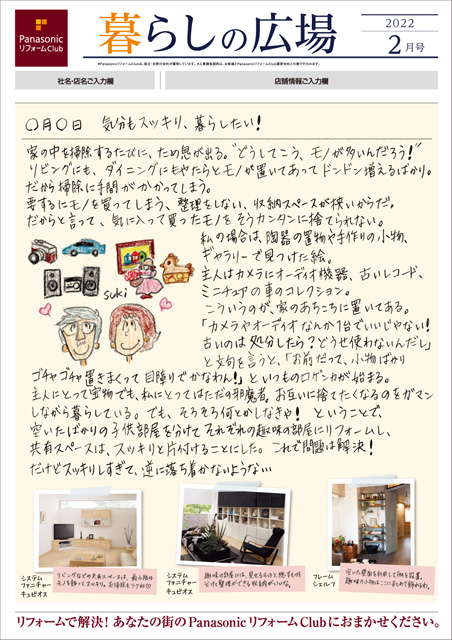 Panasonic
リフォームClub
暮らしの広場
2022
2月号
※PanasonicリフォームClubは、独立・自営の会社が運営しています。
社名・店名ご入力欄
店舗情報ご入力欄
〇月〇日 気分もスッキリ、暮らしたい!
家の中を掃除するたびに、ため息が出る。"どうしてこう、モノが多いんだろう!"
リビングにも、ダイニングにもやたらとモノが置いてあってドンドン増えるばかり。
だから掃除に手間がかかってしまう。
要するにモノを買ってしまう、整理をしない、収納スペースが狭いからだ。
だからと言って、気に入って買ったモノをそうカンタンに捨てられない。
私の場合は、陶器の置物や手作りの小物、
ギャラリーで見つけた絵。
主人はカメラにオーディオ機器、古いレコード、
ミニチュアの車のコレクション。
こういうのが、家のあちこちに置いてある。
「カメラやオーディオなんか1台でいいじゃない!
古いのは処分したら?どうせ使わないんだし」
と文句を言うと、「お前だって、小物ばかり
ゴチャゴチャ置きまくって目障りでかなわん!」といつもの口ゲンカが始まる。
主人にとって宝物でも、私にとってはただの邪魔者。お互いに捨てたくなるのをガマン
しながら暮らしている。でも、そろそろ何とかしなきゃ! ということで、
空いたばかりの子供部屋を分けてそれぞれの趣味の部屋にリフォームし、
共有スペースは、スッキリと片付けることにした。これで問題は解決!
だけどスッキリしすぎて、逆に落ち着かないような…
suki
システム
ファニチャー
キュビオス
リビングなどの共有スペースは、最小限の
モノを飾ってスッキリ。お掃除もラクね♡
システム
ファニチャー
キュビオス
趣味の部屋には、見せるものと隠すものを
分けて整理ができる収納がいいな。
フレーム
シェルフ
空いた壁面を利用して棚を設置。
趣味の小物はここにまとめて飾れるわ。
リフォームで解決! あなたの街の Panasonic リフォーム Club におまかせください。